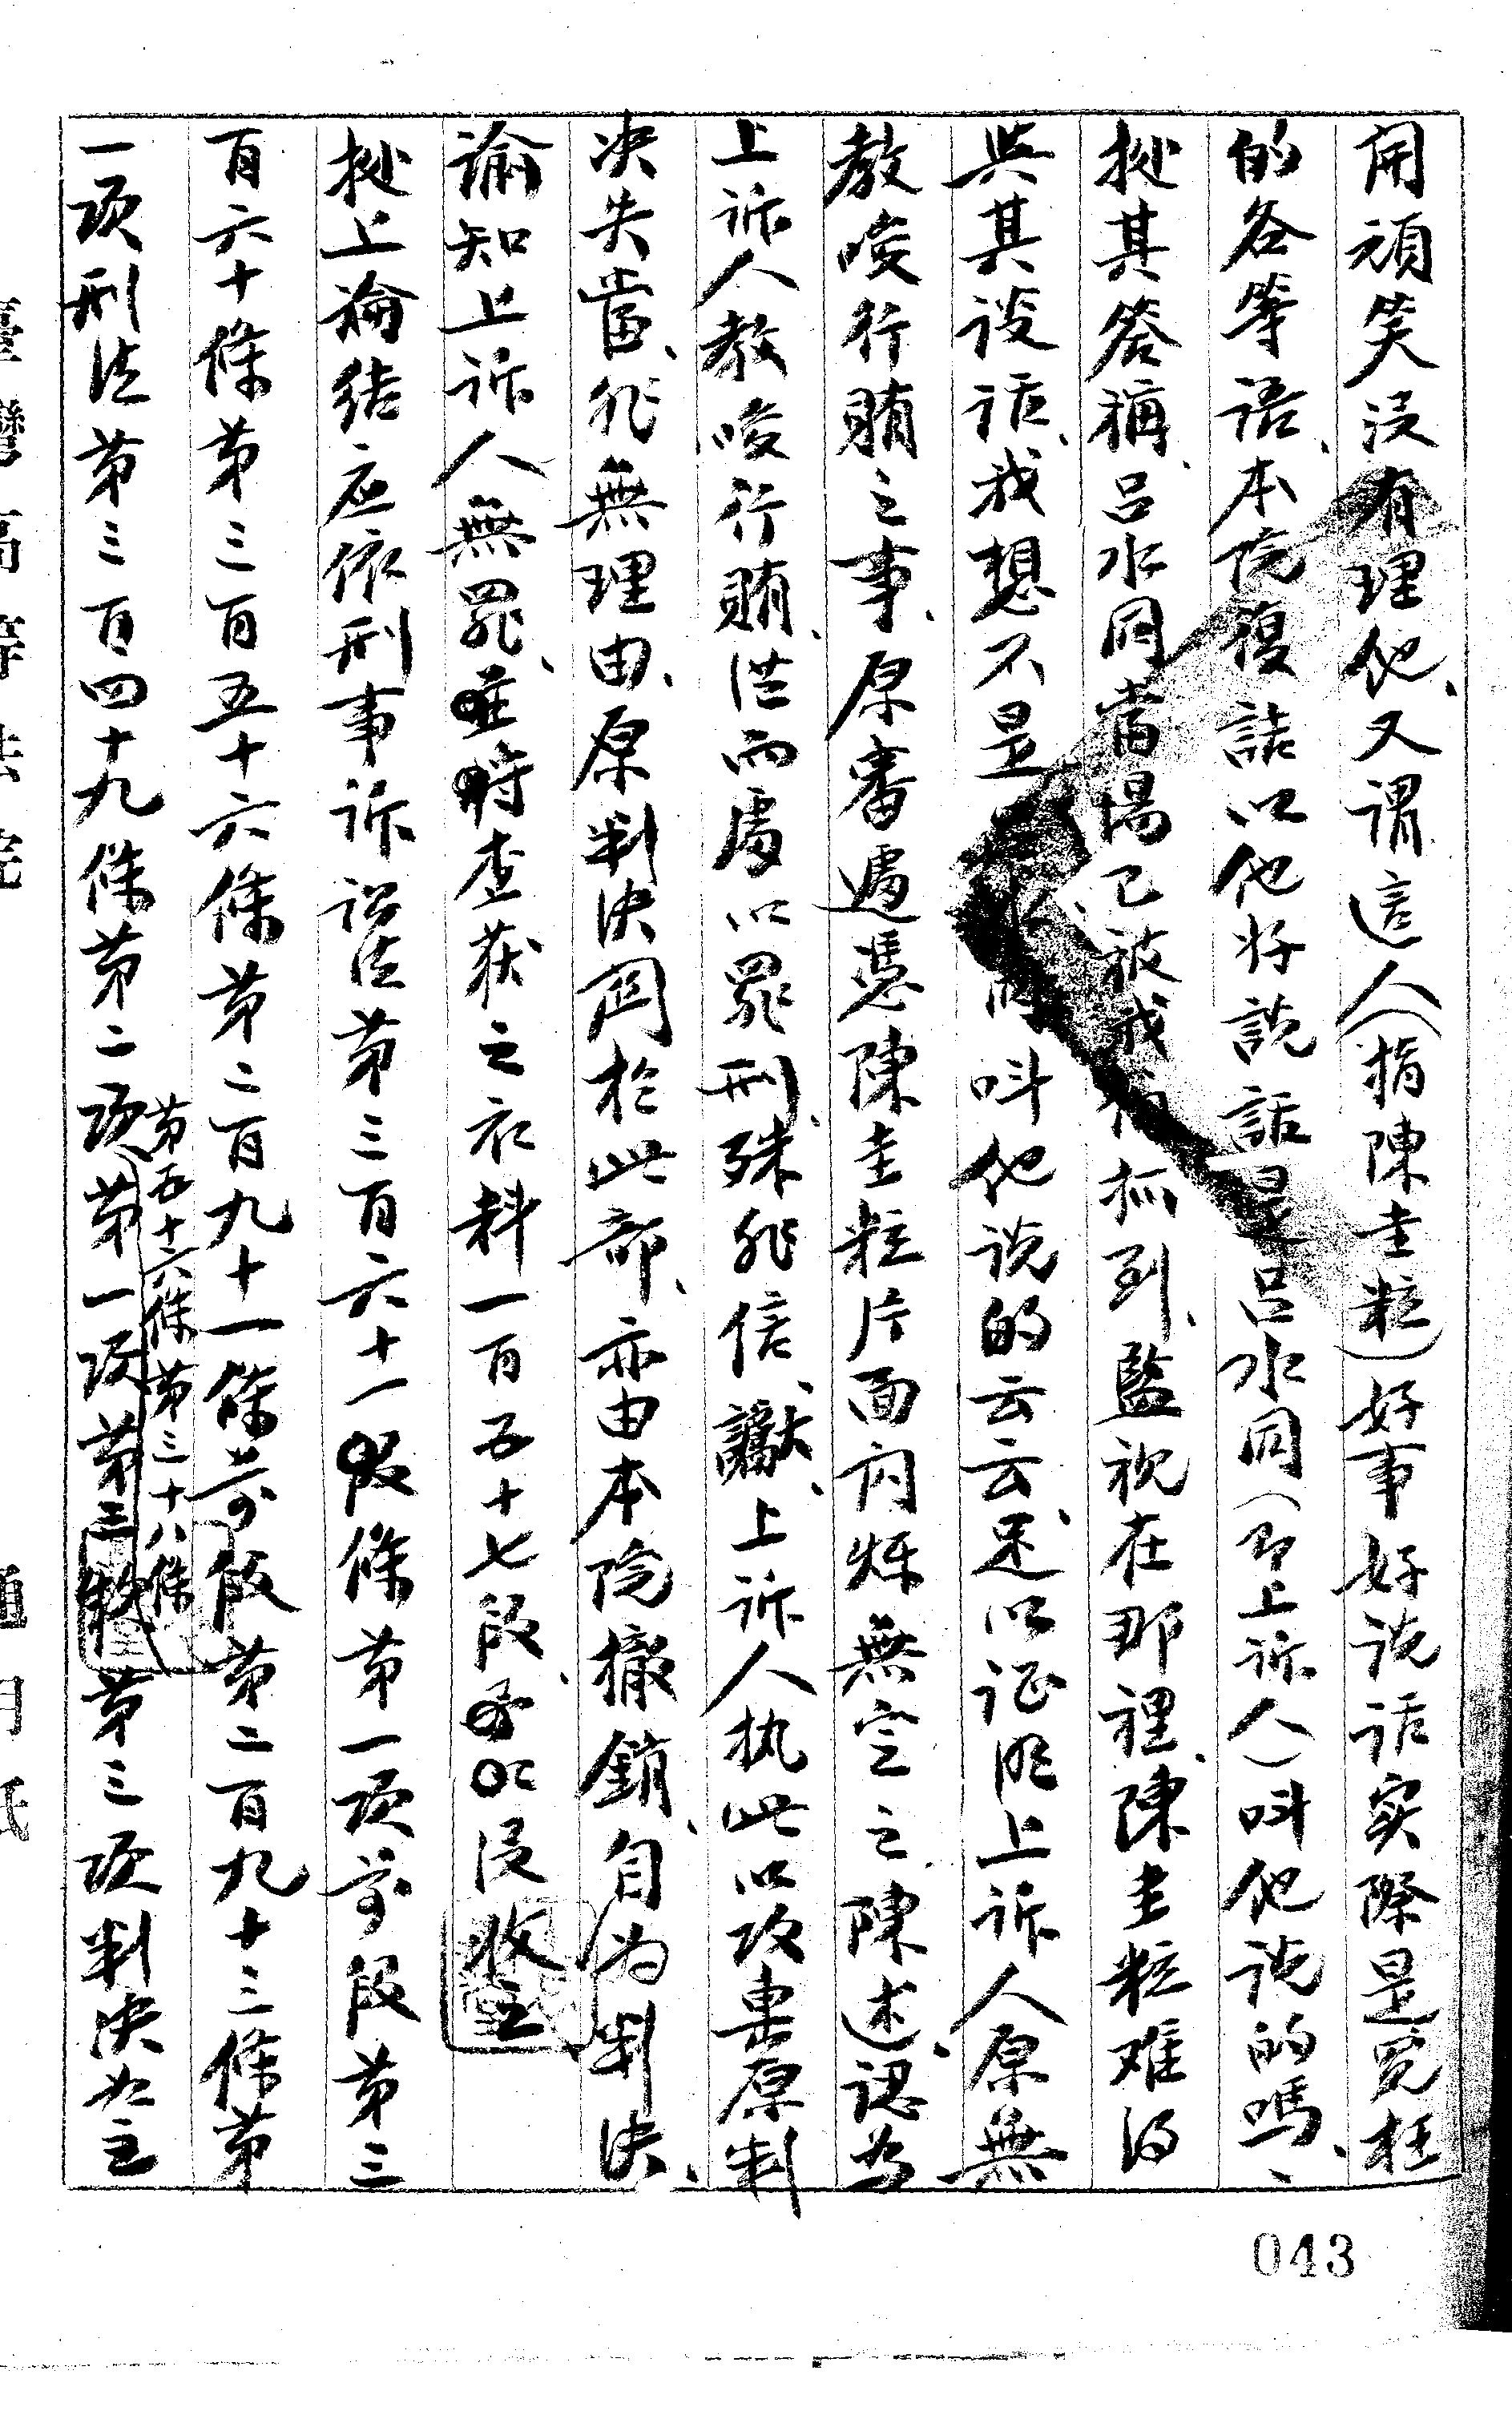 開頑笑没有理他、又謂這人(指陳圭粒)好事好说话实際是冤枉
的各等语、本院復詰以他好説話是呂水同(即上诉人)叫他说的嗎、
據其答稱、呂水同當場已被我們抓到、監視在那裡、陳圭粒难得
與其谈话、我想不是呂水同叫他说的云云、足以证明上诉人原無
教唆行賄之事、原審遽憑陳圭粒片面闪烁無定之陳述、認為
上诉人教唆行賄、從而處以罪刑、殊非信讞、上诉人执此以攻擊原判
决失當、非無理由、原判决関於此部、亦由本院撤銷、自为判决、
諭知上诉人無罪、至查获之衣料一百五十七段、没收
據上論结应依刑事诉讼法第三百六十一條第一项前段第三
百六十條第三百五十六條第二百九十一條前段第二百九十三條第
第五十六條第三十八條
一项刑法第三百四十九條第二项第一项第三款第三项判决如主
臺灣高等法院 通用紙
043